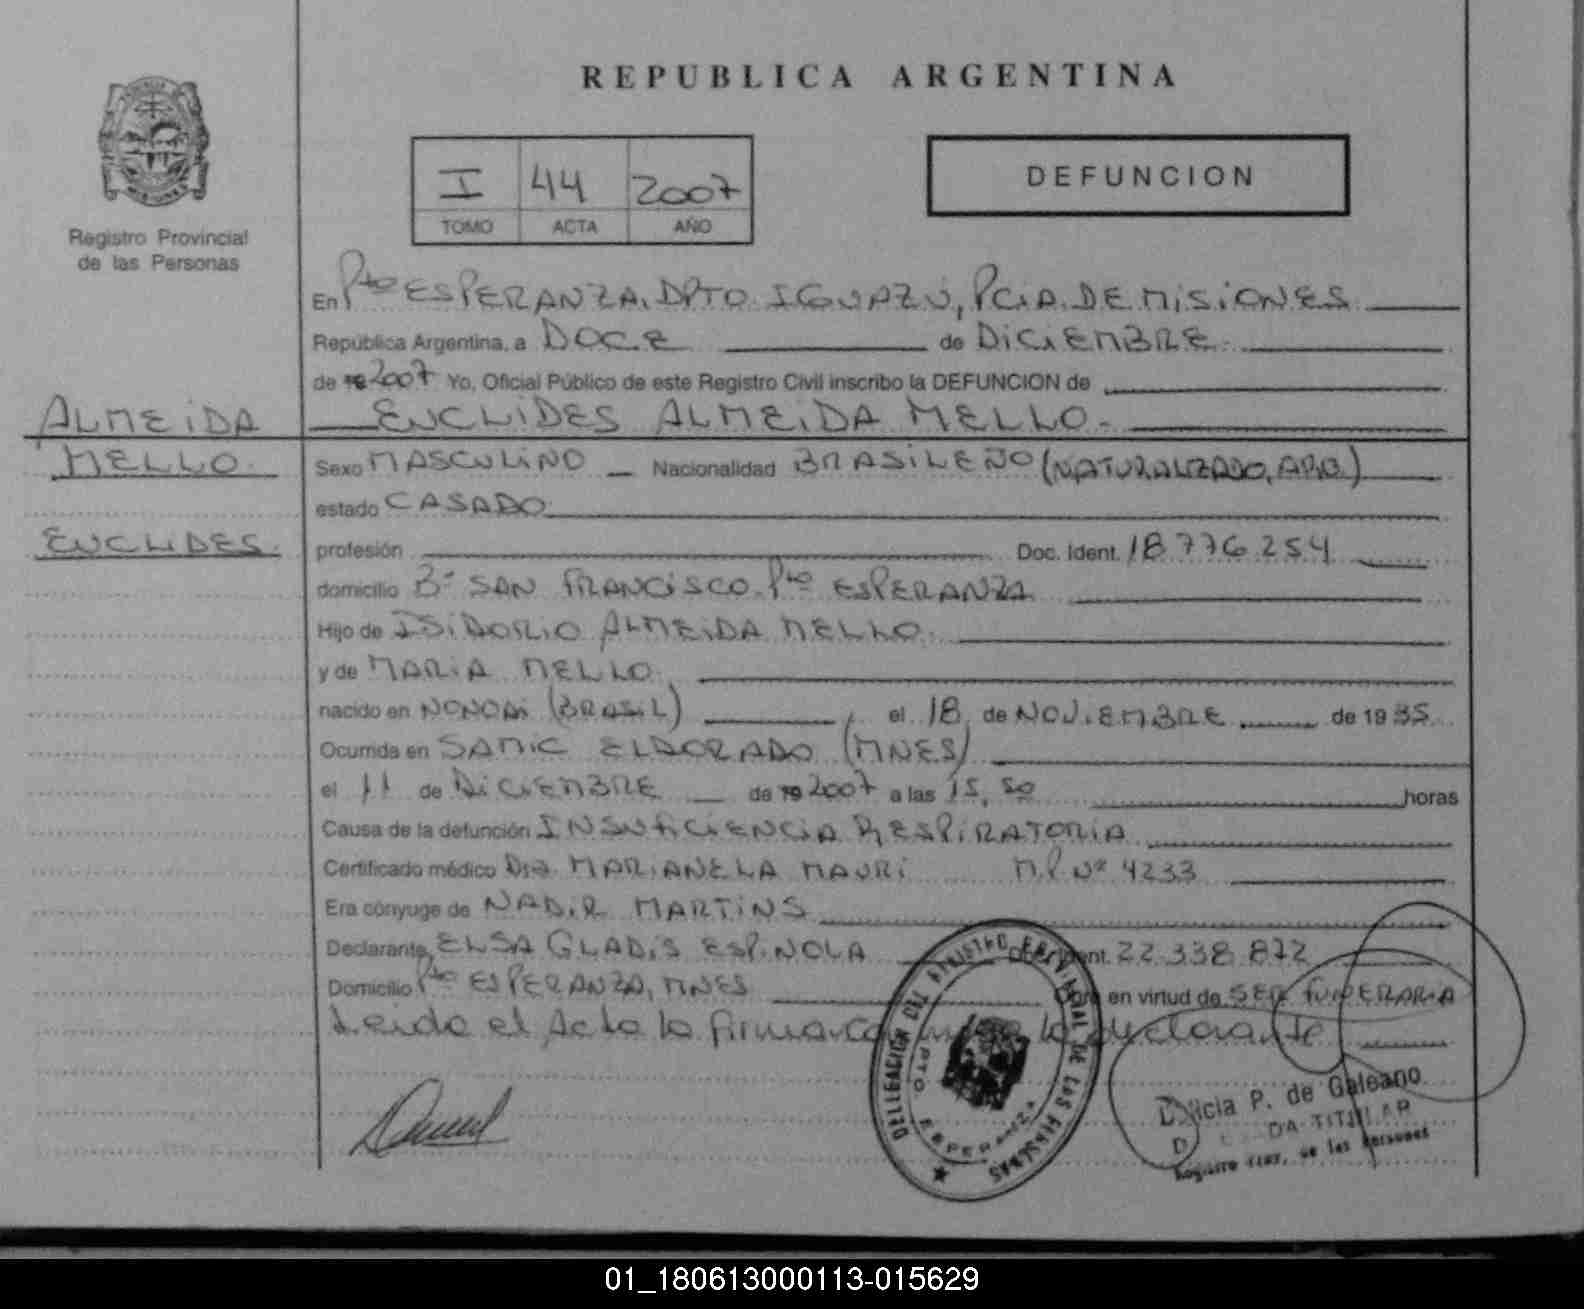 REPUBLICA ARGENTINA
Registro Provincial
de las Personas
I 44 2007
TOMO ACTA AÑO
DEFUNCION
En Pto ESPERANZA, DPTO IGUAZÚ, PCIA. DE MISIONES
República Argentina, a DOCE de DICIEMBRE
de 19 2007 Yo, Oficial Público de este Registro Civil inscribo la DEFUNCION de
EUCLIDES ALMEIDA MELLO.-
ALMEIDA
MELLO.
EUCLIDES.
Sexo MASCULINO Nacionalidad BRASILEÑO (NATURALIZADO, ARG.)
estado CASADO
profesión Doc. Ident. 18.776.254
domicilio Bº SAN FRANCISCO. Pto ESPERANZA
Hijo de ISIDORIO ALMEIDA MELLO.
y de MARIA MELLO.
nacido en NONOAI (BRASIL), el 18 de NOVIEMBRE de 1935
Ocurrida en SAMIC ELDORADO (MNES)
el 11 de DICIEMBRE de 19 2007 a las 15,50 horas
Causa de la defunción INSUFICIENCIA RESPIRATORIA
Certificado médico Dra. MARIANELA MAURI M.P. Nº 4233
Era cónyuge de NADIR MARTINS
Declarante, ELSA GLADIS ESPINOLA Doc. Ident. 22.338.872
Domicilio Pto ESPERANZA, MNES Obra en virtud de SER FUNERARIA
Leida el Acta la firma conmigo la declarante
DELEGACION DEL REGISTRO PROVINCIAL DE LAS PERSONAS
PTO. ESPERANZA
P. de Galeano
TITULAR
de las Personas
01_180613000113-015629